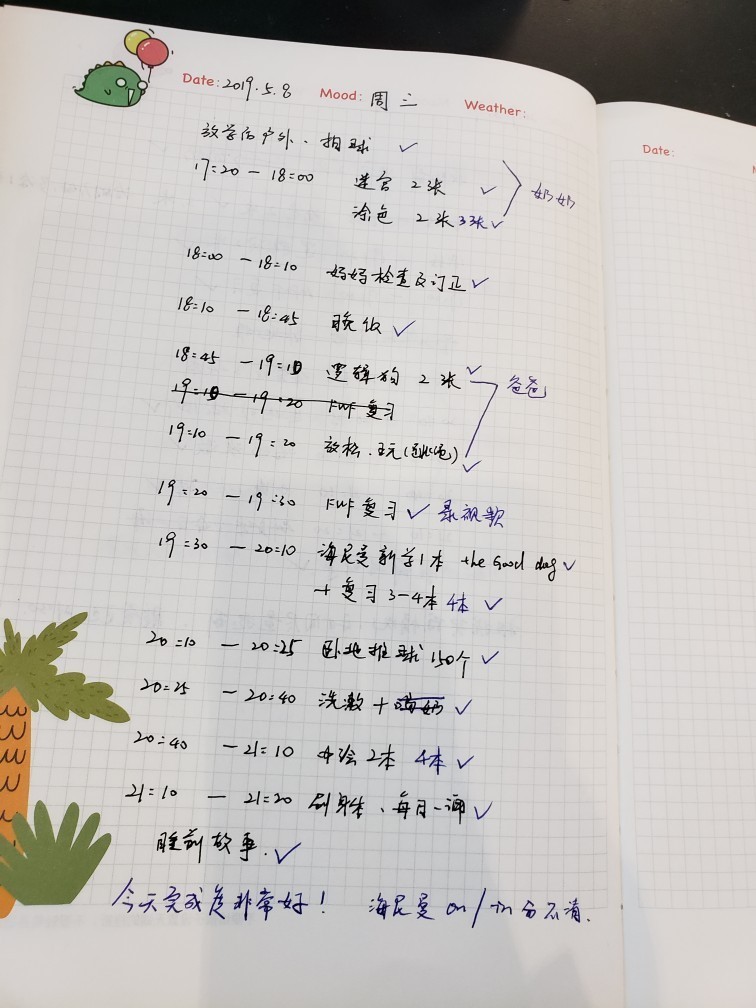 Date: 2019.5.8 Mood: 周三 Weather:
放学后户外、拍球 ✓
17:20 - 18:00 迷宫 2张 ✓
涂色 2张 3张 ✓ 奶奶
18:00 - 18:10 妈妈检查及订正 ✓
18:10 - 18:45 晚饭 ✓
18:45 - 19:10 逻辑狗 2张 ✓ 爸爸
19:10 - 19:20 FWF 复习
19:10 - 19:20 放松、玩 ✓
19:20 - 19:30 FWF 复习 ✓ 录视频
19:30 - 20:10 海尼曼新学1本 the Good dog ✓
+ 复习 3-4本 4本 ✓
20:10 - 20:25 卧地推球 150个 ✓
20:25 - 20:40 洗漱 + ✓
20:40 - 21:10 中绘 2本 4本 ✓
21:10 - 21:20 每日一 ✓
睡前故事. ✓
今天完成度非常好! 海尼曼 on / in 分不清.
Date: